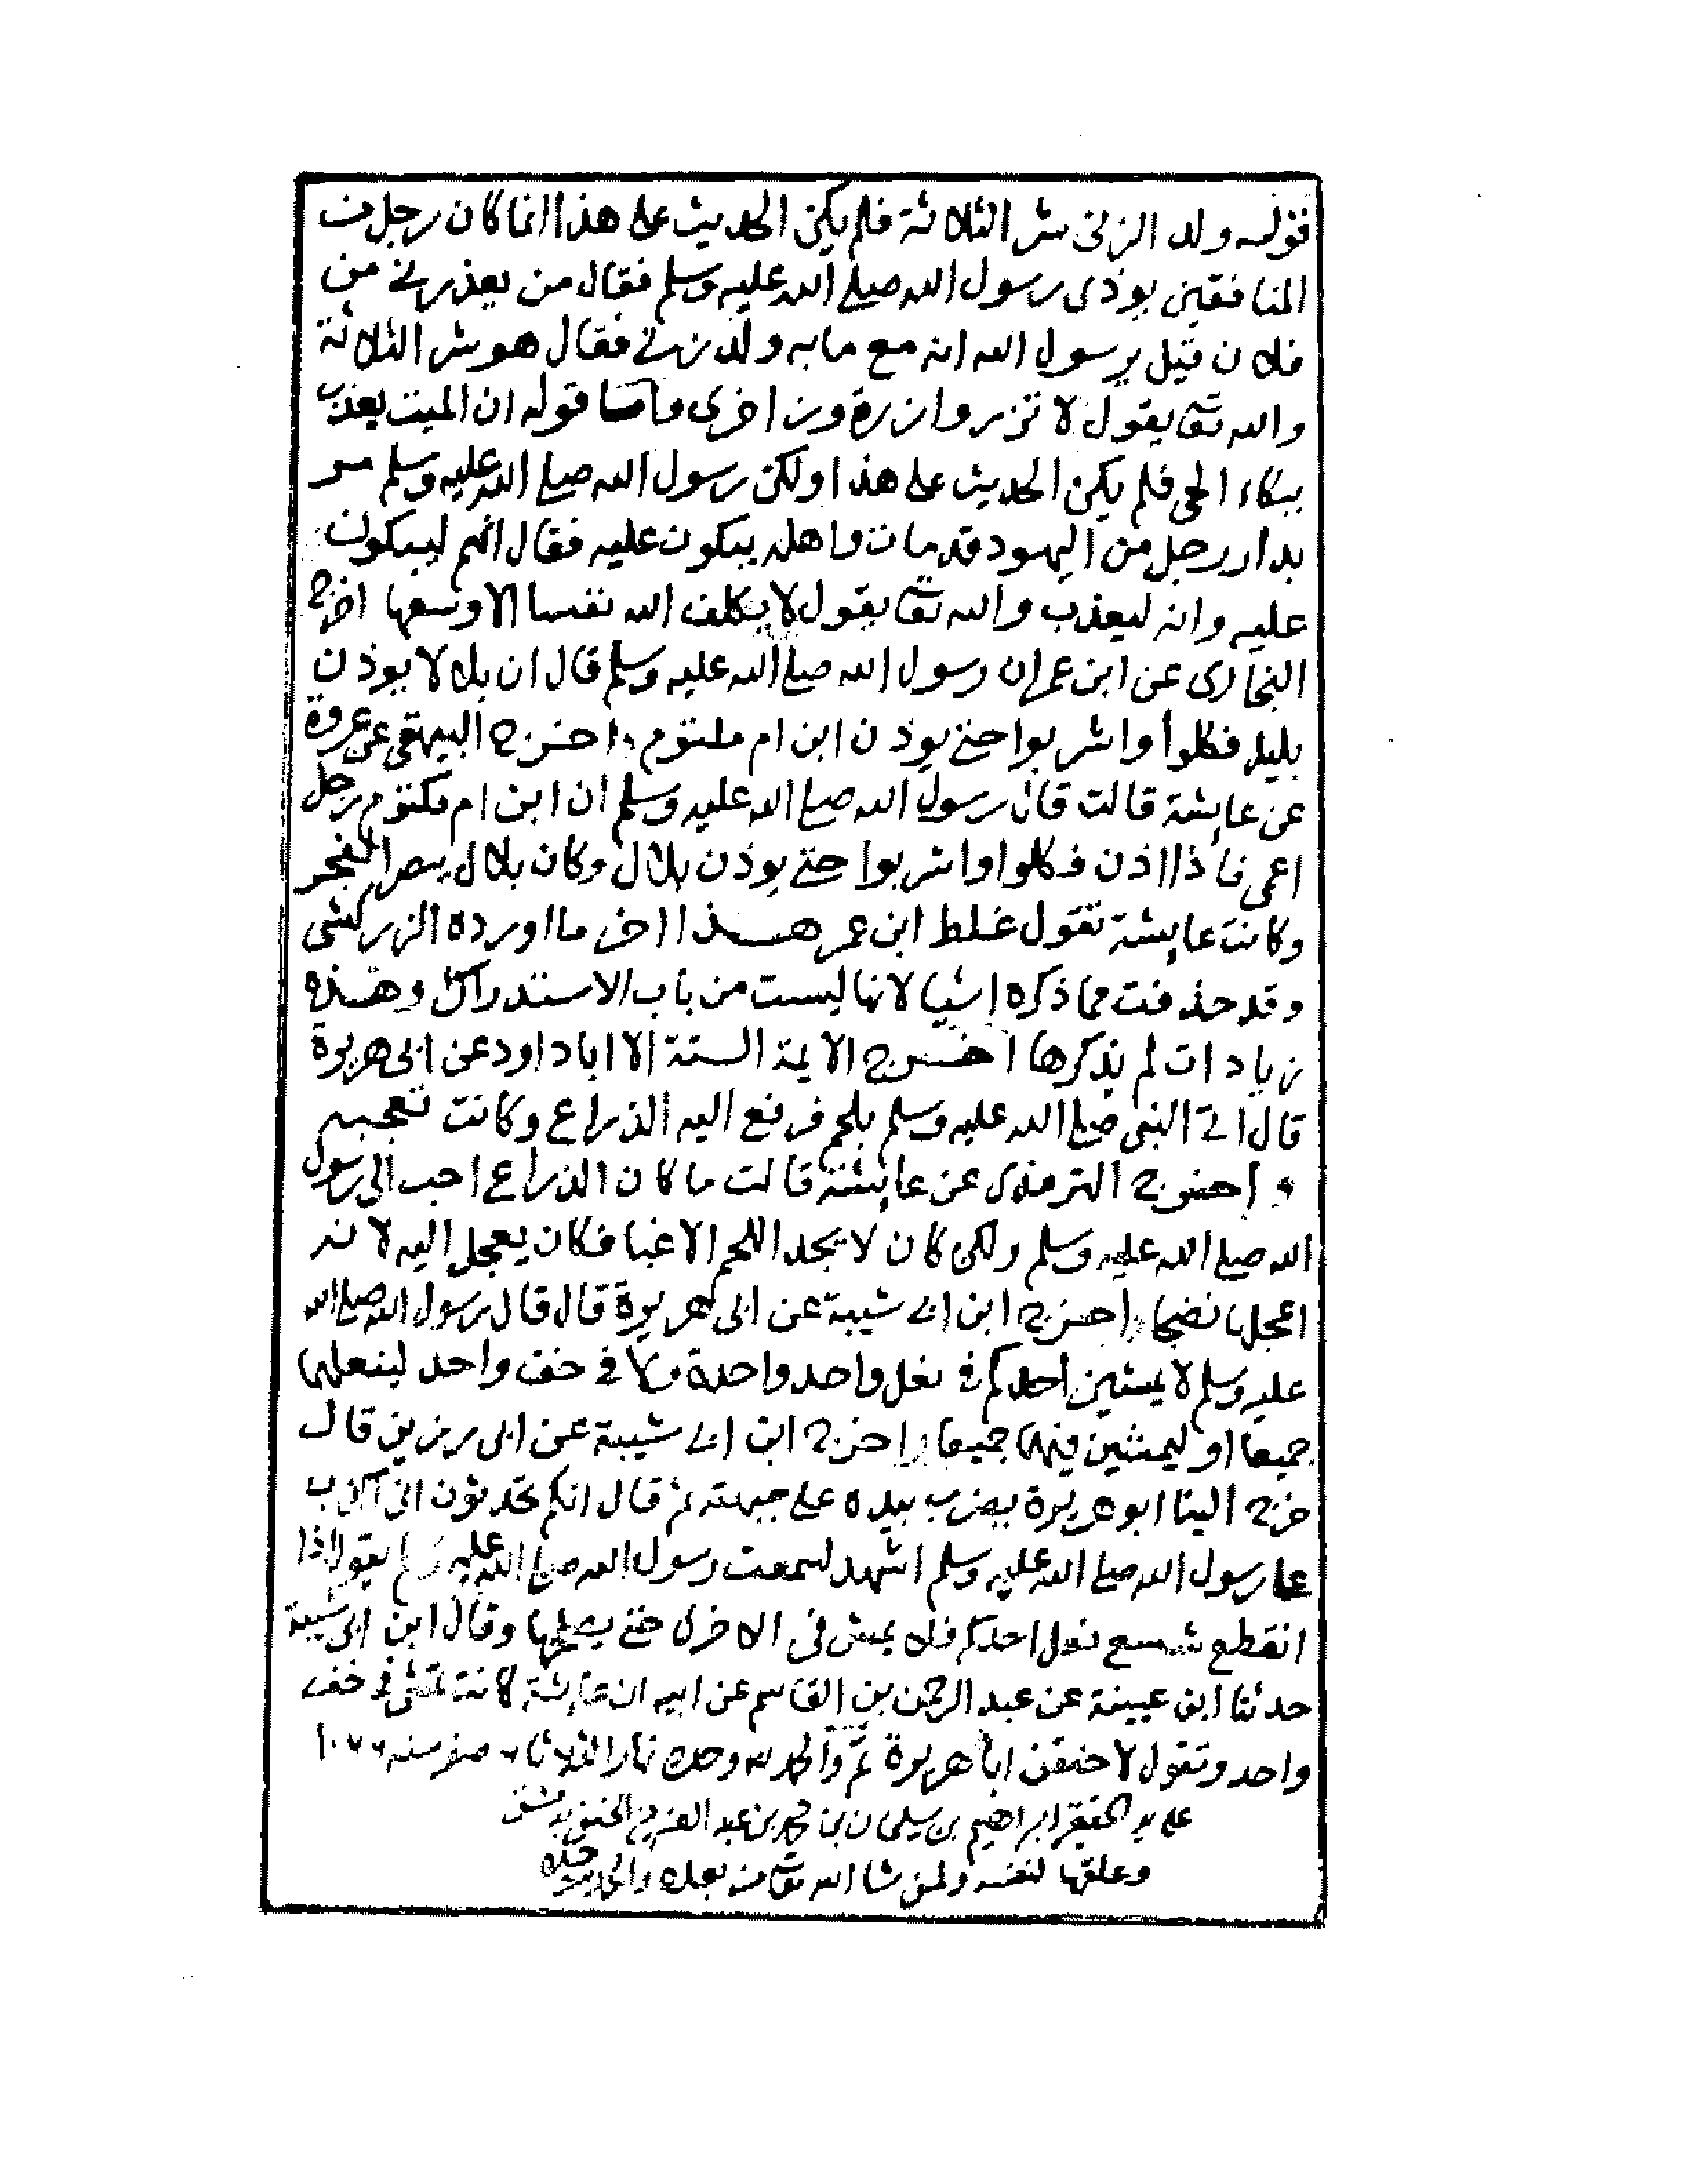 قوله ولد الزنى شر الثلاثة فلم يكن الحديث على هذا انما كان رجل من
المنافقين يوذى رسول الله صلى الله عليه وسلم فقال من يعذرنى من
فلان قيل يرسول الله انه مع ما به ولد زنى فقال هو شر الثلاثة
والله تعا يقول لا تزر وازرة وزر اخرى واما قوله ان الميت يعذب
ببكاء الحى فلم يكن الحديث على هذا ولكن رسول الله صلى الله عليه وسلم مر
بدار رجل من اليهود قد مات واهله يبكون عليه فقال انهم ليبكون
عليه وانه ليعذب والله تعا يقول لا يكلف الله نفسا الا وسعها اخرج
البخارى عن ابن عمر ان رسول الله صلى الله عليه وسلم قال ان بلالا يوذن
بليل فكلوا واشربوا حتى يوذن ابن ام مكتوم واخرج البيهقى عن عروة
عن عايشة قالت قال رسول الله صلى الله عليه وسلم ان ابن ام مكتوم رجل
اعمى فاذا اذن فكلوا واشربوا حتى يوذن بلال وكان بلال يبصر الفجر
وكانت عايشة تقول غلط ابن عمر هذا اخر ما اورده الزركشى
وقد حذفت مما ذكره اشيا لانها ليست من باب الاستدراك وهذه
زيادات لم يذكرها اخرج الايمة الستة الا ابا داود عن ابى هريرة
قال اتى النبى صلى الله عليه وسلم بلحم فرفع اليه الذراع وكانت تعجبه
واخرج الترمذى عن عايشة قالت ما كان الذراع احب الى رسول
الله صلى الله عليه وسلم ولكن كان لا يجد اللحم الا غبا فكان يعجل اليه لانه
اعجلها نضجا واخرج ابن ابى شيبة عن ابى هريرة قال قال رسول الله صلى الله
عليه وسلم لا يمشين احدكم فى نعل واحد واحدة ولا فى خف واحد لينعلهما
جميعا او ليمشين فيهما جميعا واخرج ابن ابى شيبة عن ابى رزين قال
خرج الينا ابو هريرة يضرب بيده على جبهته ثم قال انكم تحدثون انى اكذب
على رسول الله صلى الله عليه وسلم اشهد لسمعت رسول الله صلى الله عليه وسلم يقول اذا
انقطع شسع نعل احدكم فلا يمش فى الاخرى حتى يصلحها وقال ابن ابى شيبة
حدثنا ابن عيينة عن عبد الرحمن بن القاسم عن ابيه ان عايشة كانت تمشى فى خف
واحد وتقول لاخيفن ابا هريرة تم والحمد لله وحده نهار الثلاثا صفر سنه ١٠٧٧
على يد الحقير ابراهيم بن سليمان بن محمد بن عبد العزيز الحنفى بدمشق
وعلقها لنفسه ولمن شا الله تعا من بعده والحمد لله وحده